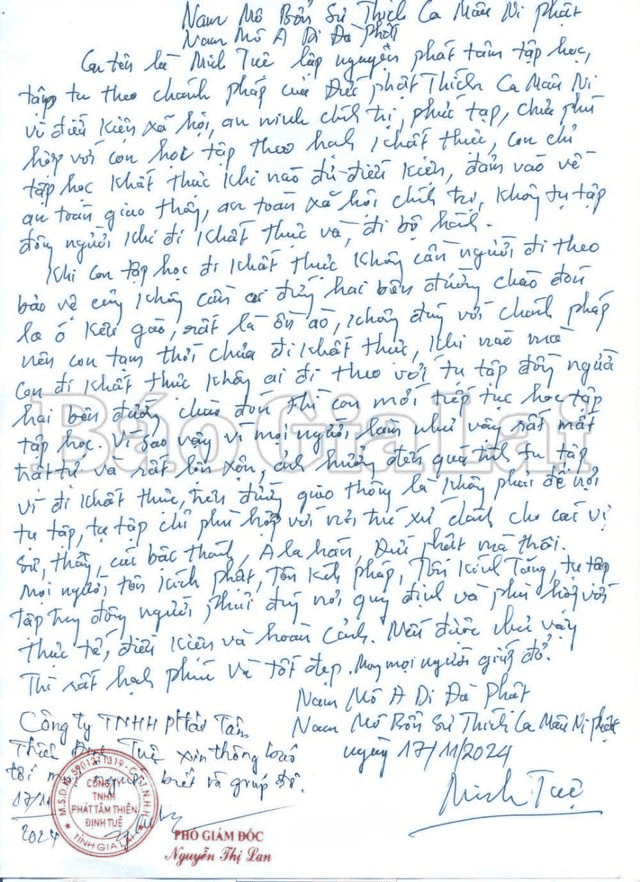 Nam Mô Bổn Sư Thích Ca Mâu Ni Phật
Nam Mô A Di Đà Phật
Con tên là Minh Tuệ lập nguyện phát tâm tập học,
tập tu theo chánh pháp của Đức phật Thích Ca Mâu Ni
vì điều kiện xã hội, an ninh chính trị, phức tạp, chưa phù
hợp với con học tập theo hạnh khất thực, con chỉ
tập học khất thực khi nào đủ điều kiện, đảm vảo về
an toàn giao thông, an toàn xã hội chính trị, không tụ tập
đông người khi đi khất thực và, đi bộ hành.
Khi con tập học đi khất thực không cần người đi theo
bảo vệ cũng không cần ai đứng hai bên đường chào đón
la ó kêu gào, rất là ồn ào, không đúng với chánh pháp
nên con tạm thời chưa đi khất thực, khi nào mà
con đi khất thực không ai đi theo với tụ tập đông người
hai bên đường chào đón thì con mới tiếp tục học tập
tập học. Vì sao vậy vì mọi người làm như vậy rất mất
trật tự và rất lộn xộn, ảnh hưởng đến quá trình tu tập
vì đi khất thực, trên đường giao thông là không phải để nơi
tụ tập, tụ tập chỉ phù hợp với nơi trú xứ dành cho các vị
sư, thầy, các bậc thánh, A la hán, Đức phật mà thôi.
Mọi người tôn kính phật, Tôn kính pháp, Tôn kính Tăng, tụ tập
tập trung đông người phải đúng nơi quy định và phù hợp với
thực tế, điều kiện và hoàn cảnh. Nếu được như vậy
Thì rất hạnh phúc và tốt đẹp. Mong mọi người giúp đỡ.
Nam Mô A Di Đà Phật
Nam Mô Bổn Sư Thích Ca Mâu Ni phật
ngày 17/11/2024
Minh Tuệ
Công ty TNHH Phát Tâm
Thiện Định Tuệ xin thông báo
tới mọi người biết và giúp đỡ.
17/11
2024
CÔNG TY
TNHH
PHÁT TÂM THIỆN
ĐỊNH TUỆ
TỈNH GIA LAI
PHÓ GIÁM ĐỐC
Nguyễn Thị Lan
Báo Gia Lai